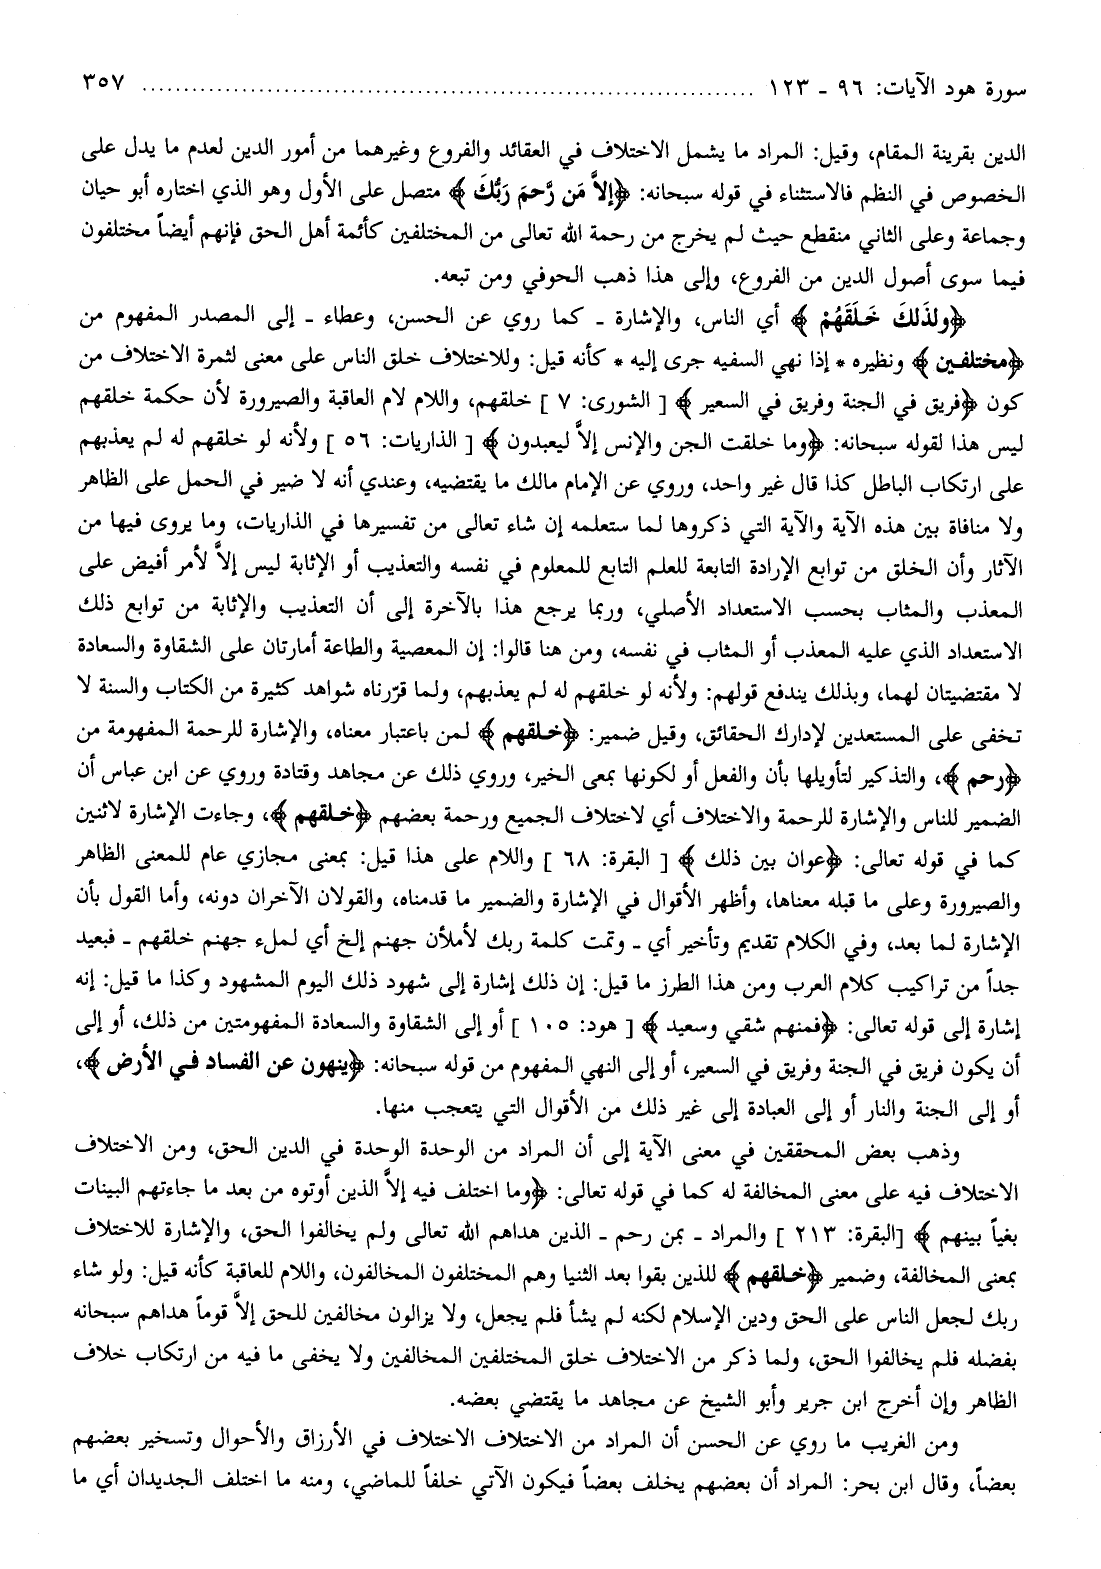 سورة هود الآيات: ٩٦ - ١٢٣ ........................................................................ ٣٥٧
الدين بقرينة المقام، وقيل: المراد ما يشمل الاختلاف في العقائد والفروع وغيرهما من أمور الدين لعدم ما يدل على
الخصوص في النظم فالاستثناء في قوله سبحانه: ﴿إلاَّ مَن رَّحمَ رَبُّكَ﴾ متصل على الأول وهو الذي اختاره أبو حيان
وجماعة وعلى الثاني منقطع حيث لم يخرج من رحمة الله تعالى من المختلفين كأئمة أهل الحق فإنهم أيضاً مختلفون
فيما سوى أصول الدين من الفروع، وإلى هذا ذهب الحوفي ومن تبعه.
﴿ولذَلكَ خَلَقَهُمْ﴾ أي الناس، والإشارة ـ كما روي عن الحسن، وعطاء ـ إلى المصدر المفهوم من
﴿مختلفين﴾ ونظيره * إذا نهي السفيه جرى إليه * كأنه قيل: وللاختلاف خلق الناس على معنى لثمرة الاختلاف من
كون ﴿فريق في الجنة وفريق في السعير﴾ [ الشورى: ٧ ] خلقهم، واللام لام العاقبة والصيرورة لأن حكمة خلقهم
ليس هذا لقوله سبحانه: ﴿وما خلقت الجن والإنس إلاَّ ليعبدون﴾ [ الذاريات: ٥٦ ] ولأنه لو خلقهم له لم يعذبهم
على ارتكاب الباطل كذا قال غير واحد، وروي عن الإمام مالك ما يقتضيه، وعندي أنه لا ضير في الحمل على الظاهر
ولا منافاة بين هذه الآية والآية التي ذكروها لما ستعلمه إن شاء تعالى من تفسيرها في الذاريات، وما يروى فيها من
الآثار وأن الخلق من توابع الإرادة التابعة للعلم التابع للمعلوم في نفسه والتعذيب أو الإثابة ليس إلاَّ لأمر أفيض على
المعذب والمثاب بحسب الاستعداد الأصلي، وربما يرجع هذا بالآخرة إلى أن التعذيب والإثابة من توابع ذلك
الاستعداد الذي عليه المعذب أو المثاب في نفسه، ومن هنا قالوا: إن المعصية والطاعة أمارتان على الشقاوة والسعادة
لا مقتضيتان لهما، وبذلك يندفع قولهم: ولأنه لو خلقهم له لم يعذبهم، ولما قرّرناه شواهد كثيرة من الكتاب والسنة لا
تخفى على المستعدين لإدارك الحقائق، وقيل ضمير: ﴿خلقهم﴾ لمن باعتبار معناه، والإشارة للرحمة المفهومة من
﴿رحم﴾، والتذكير لتأويلها بأن والفعل أو لكونها بمعى الخير، وروي ذلك عن مجاهد وقتادة وروي عن ابن عباس أن
الضمير للناس والإشارة للرحمة والاختلاف أي لاختلاف الجميع ورحمة بعضهم ﴿خلقهم﴾، وجاءت الإشارة لاثنين
كما في قوله تعالى: ﴿عوان بين ذلك﴾ [ البقرة: ٦٨ ] واللام على هذا قيل: بمعنى مجازي عام للمعنى الظاهر
والصيرورة وعلى ما قبله معناها، وأظهر الأقوال في الإشارة والضمير ما قدمناه، والقولان الآخران دونه، وأما القول بأن
الإشارة لما بعد، وفي الكلام تقديم وتأخير أي ـ وتمت كلمة ربك لأملأن جهنم إلخ أي لملء جهنم خلقهم ـ فبعيد
جداً من تراكيب كلام العرب ومن هذا الطرز ما قيل: إن ذلك إشارة إلى شهود ذلك اليوم المشهود وكذا ما قيل: إنه
إشارة إلى قوله تعالى: ﴿فمنهم شقي وسعيد﴾ [ هود: ١٠٥ ] أو إلى الشقاوة والسعادة المفهومتين من ذلك، أو إلى
أن يكون فريق في الجنة وفريق في السعير، أو إلى النهي المفهوم من قوله سبحانه: ﴿ينهون عن الفساد في الأرض﴾،
أو إلى الجنة والنار أو إلى العبادة إلى غير ذلك من الأقوال التي يتعجب منها.
وذهب بعض المحققين في معنى الآية إلى أن المراد من الوحدة الوحدة في الدين الحق، ومن الاختلاف
الاختلاف فيه على معنى المخالفة له كما في قوله تعالى: ﴿وما اختلف فيه إلاَّ الذين أوتوه من بعد ما جاءتهم البينات
بغياً بينهم﴾ [البقرة: ٢١٣ ] والمراد ـ بمن رحم ـ الذين هداهم الله تعالى ولم يخالفوا الحق، والإشارة للاختلاف
بمعنى المخالفة، وضمير ﴿خلقهم﴾ للذين بقوا بعد الثنيا وهم المختلفون المخالفون، واللام للعاقبة كأنه قيل: ولو شاء
ربك لجعل الناس على الحق ودين الإسلام لكنه لم يشأ فلم يجعل، ولا يزالون مخالفين للحق إلاَّ قوماً هداهم سبحانه
بفضله فلم يخالفوا الحق، ولما ذكر من الاختلاف خلق المختلفين المخالفين ولا يخفى ما فيه من ارتكاب خلاف
الظاهر وإن أخرج ابن جرير وأبو الشيخ عن مجاهد ما يقتضي بعضه.
ومن الغريب ما روي عن الحسن أن المراد من الاختلاف الاختلاف في الأرزاق والأحوال وتسخير بعضهم
بعضاً، وقال ابن بحر: المراد أن بعضهم يخلف بعضاً فيكون الآتي خلفاً للماضي، ومنه ما اختلف الجديدان أي ما